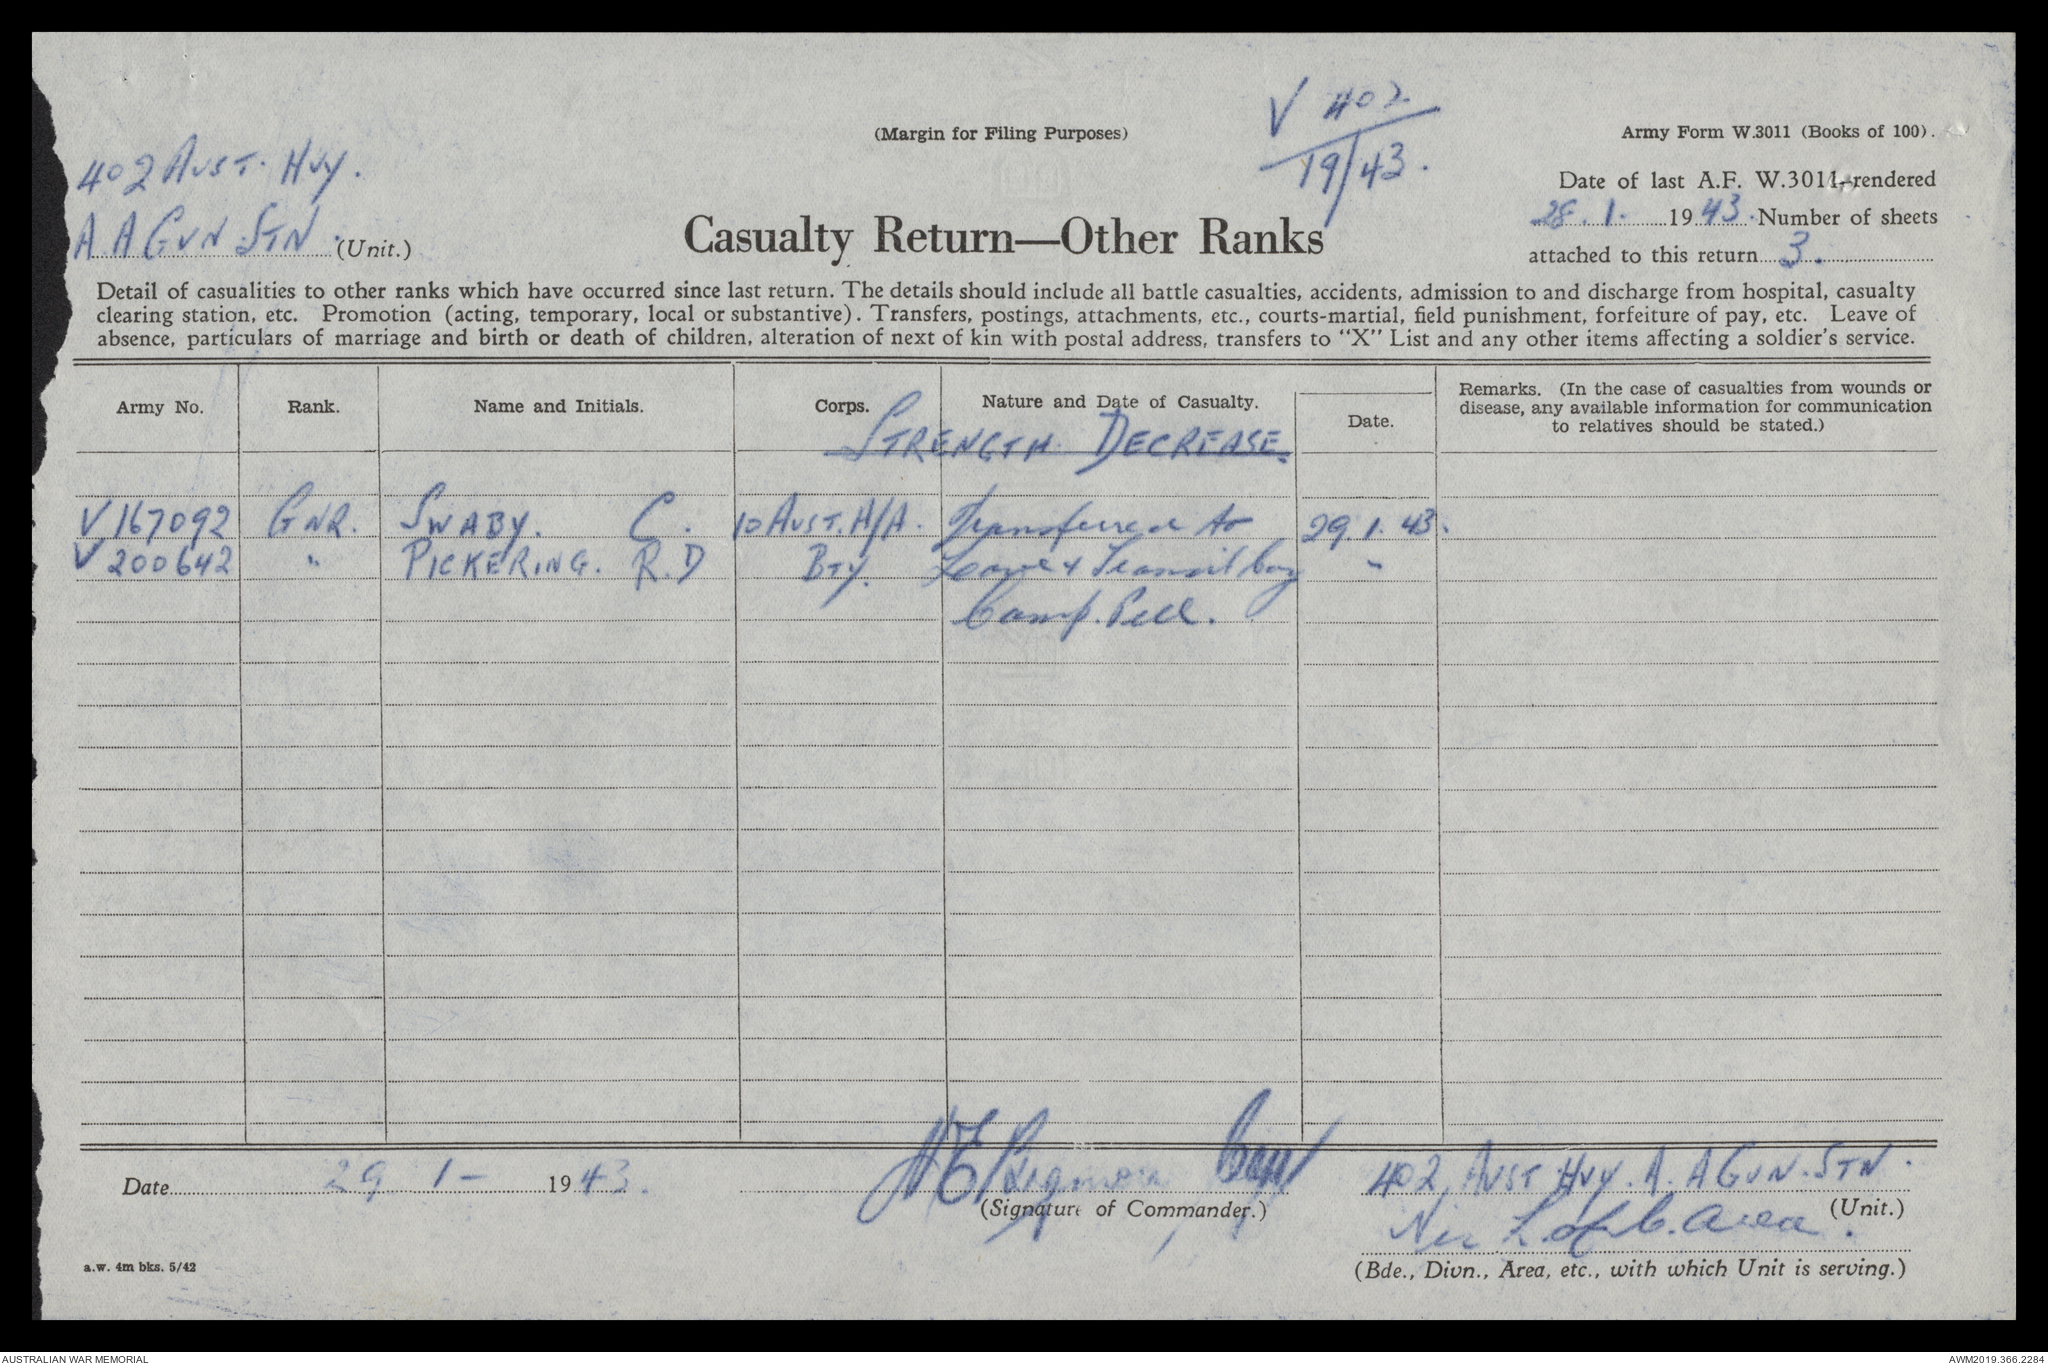 V 402
19/43.
(Margin for Filing Purposes)
Army Form W.3011 (Books of 100).
402 AUST. HVY.
A. A GUN STN. (Unit.)
Casualty Return—Other Ranks
Date of last A.F. W.3011 rendered
28.1. 1943. Number of sheets
attached to this return 3.
Detail of casualities to other ranks which have occurred since last return. The details should include all battle casualties, accidents, admission to and discharge from hospital, casualty
clearing station, etc. Promotion (acting, temporary, local or substantive). Transfers, postings, attachments, etc., courts-martial, field punishment, forfeiture of pay, etc. Leave of
absence, particulars of marriage and birth or death of children, alteration of next of kin with postal address, transfers to "X" List and any other items affecting a soldier's service.
Army No. Rank. Name and Initials. Corps. Nature and Date of Casualty. Date. Remarks. (In the case of casualties from wounds or
disease, any available information for communication
to relatives should be stated.)
STRENGTH DECREASE.
V167092 GNR. SWABY. C. 10 AUST. A/A. Transferred to 29.1.43.
V200642 " PICKERING. R.D BTY. Leave & Transit Coy "
Camp. Pell.
Date 29 1- 1943. (Signature of Commander.) 402 AUST HVY. A. A GUN. STN.
(Unit.)
L. of C. Area.
(Bde., Divn., Area, etc., with which Unit is serving.)
a.w. 4m bks. 5/42
AUSTRALIAN WAR MEMORIAL
AWM2019.366.2284